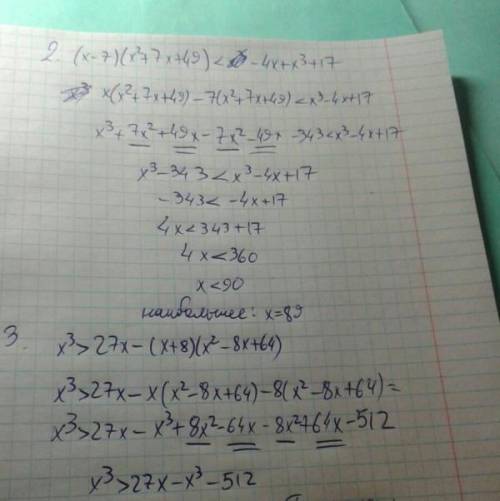 2. (x-7)(x²+7x+49)< -4x+x³+17
x(x²+7x+49)-7(x²+7x+49)<x³-4x+17
x³+7x²+49x-7x²-49x-343<x³-4x+17
x³-343<x³-4x+17
-343< -4x+17
4x<343+17
4x<360
x<90
наибольшее: x=89
3. x³>27x-(x+8)(x²-8x+64)
x³>27x-x(x²-8x+64)-8(x²-8x+64)=
x³>27x-x³+8x²-64x-8x²+64x-512
x³>27x-x³-512